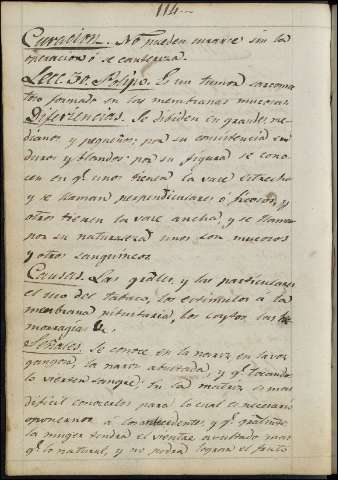 114..
Curacion. No pueden curarse sin la
operacion ó se cauteriza.
Lecc. 30. Polipo. Es un tumor sarcoma
toso formado en las membranas mucosas.
Diferiencias. Se dibiden en grandes me-
dianos y pequeños; por su consistencia en
duros y blandos: por su figura se cono-
cen en qe. unos tienen la vace estrecha
y se llaman perpendiculares ó y
otros tienen la vace ancha, y se llaman
por su naturaleza unos son mucosos
y otros sanguineos.
Causas. Las grales, y las particulares
el uso del tabaco, los estimulos a la
membrana pituitaria, los las he
morragias &.
Señales. Se conoce en la nariz en la voz
gangosa, la nariz abultada, y qe. tocando
la vierten sangre. En la matriz es mas
dificil conocerlos para lo cual es necesario
atenernos a los antecedentes, y qe.
la muger tendrá el vientre abultado mas
qe. lo natural, y no podra lograr el fruto